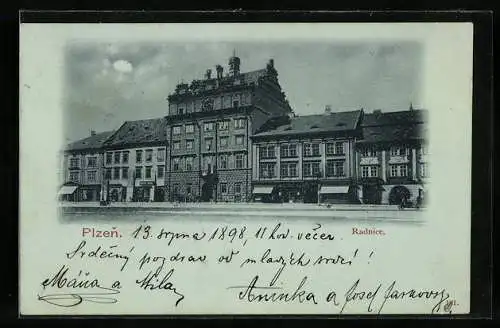 Plzeň. 13. srpna 1898, 11 hod. večer. Radnice.
Srdečný pozdrav od mladých srdcí!
Máňa a Míla
Aninka a Josef